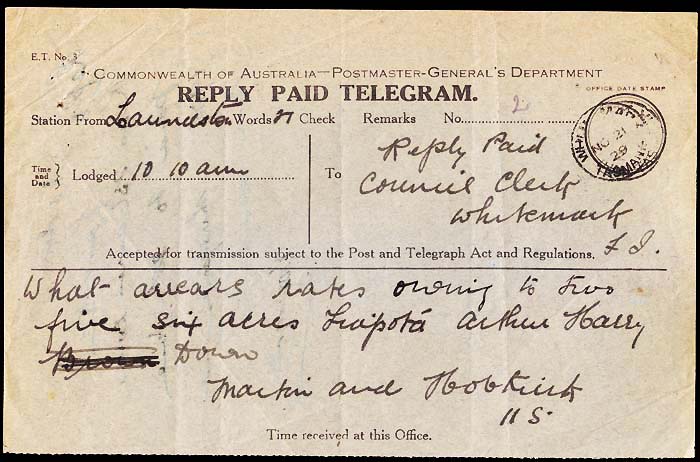 E.T. No. 3
COMMONWEALTH OF AUSTRALIA—POSTMASTER-GENERAL'S DEPARTMENT
REPLY PAID TELEGRAM.
OFFICE DATE STAMP
Station From Launceston Words 21 Check Remarks No. 2
WHITEMARK
NO 21
29
TASMANIA
Time and Date } Lodged 10 10 am To Reply Paid
Council Clerk
Whitemark
F I.
Accepted for transmission subject to the Post and Telegraph Act and Regulations.
What arrears rates owing to two
five six acres arthur Harry
Brown Down
Martin and Hobkirk
11 5
Time received at this Office.